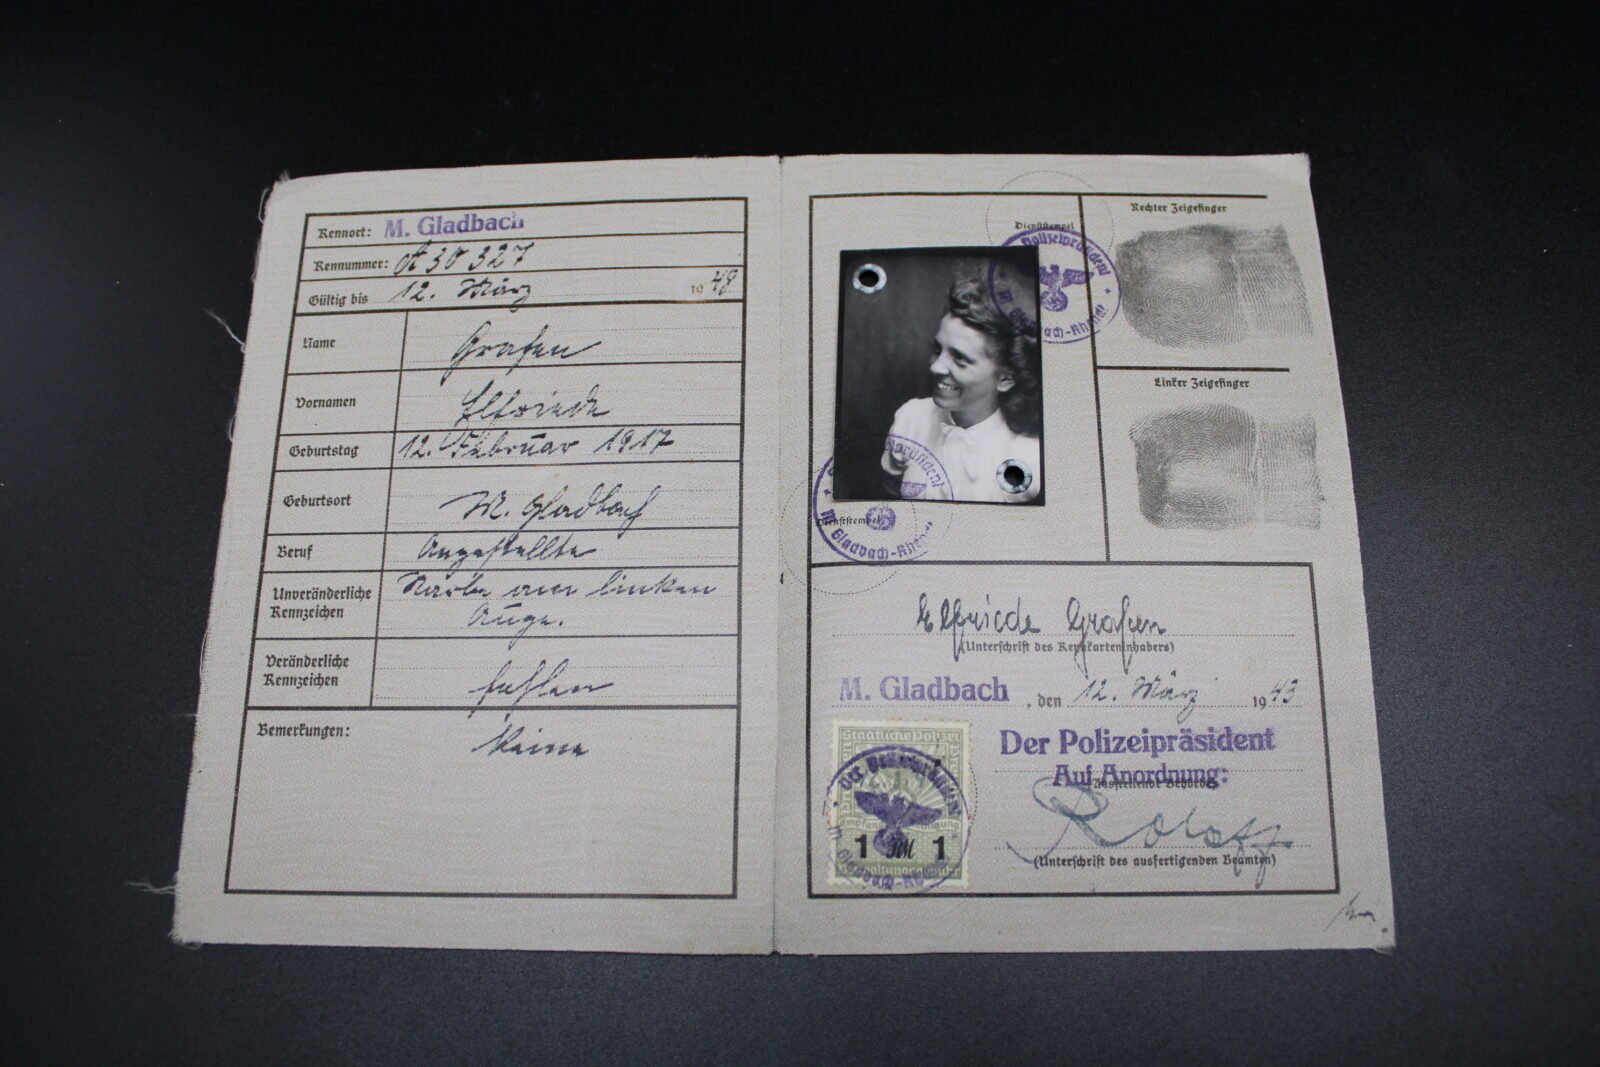 Kennort: M. Gladbach
Kennummer: A 30 327
Gültig bis 12. März 1948
Name Grafen
Vornamen Elfriede
Geburtstag 12. Februar 1917
Geburtsort M. Gladbach
Beruf Angestellte
Unveränderliche Kennzeichen Narbe am linken
Auge.
Veränderliche Kennzeichen fehlen
Bemerkungen: Keine
Dienststempel
Polizeipräsident
M. Gladbach-Rheydt
Rechter Zeigefinger
Linker Zeigefinger
Dienststempel
Polizeipräsident
M. Gladbach-Rheydt
Elfriede Grafen
(Unterschrift des Kennkarteninhabers)
M. Gladbach, den 12. März 1943
Der Polizeipräsident
Auf Anordnung:
Ausstellende Behörde
(Unterschrift des ausfertigenden Beamten)
Staatliche Polizei
Der Polizeipräsident
1 RM 1
Verwaltungsgebühr
M. Gladbach-Rheydt